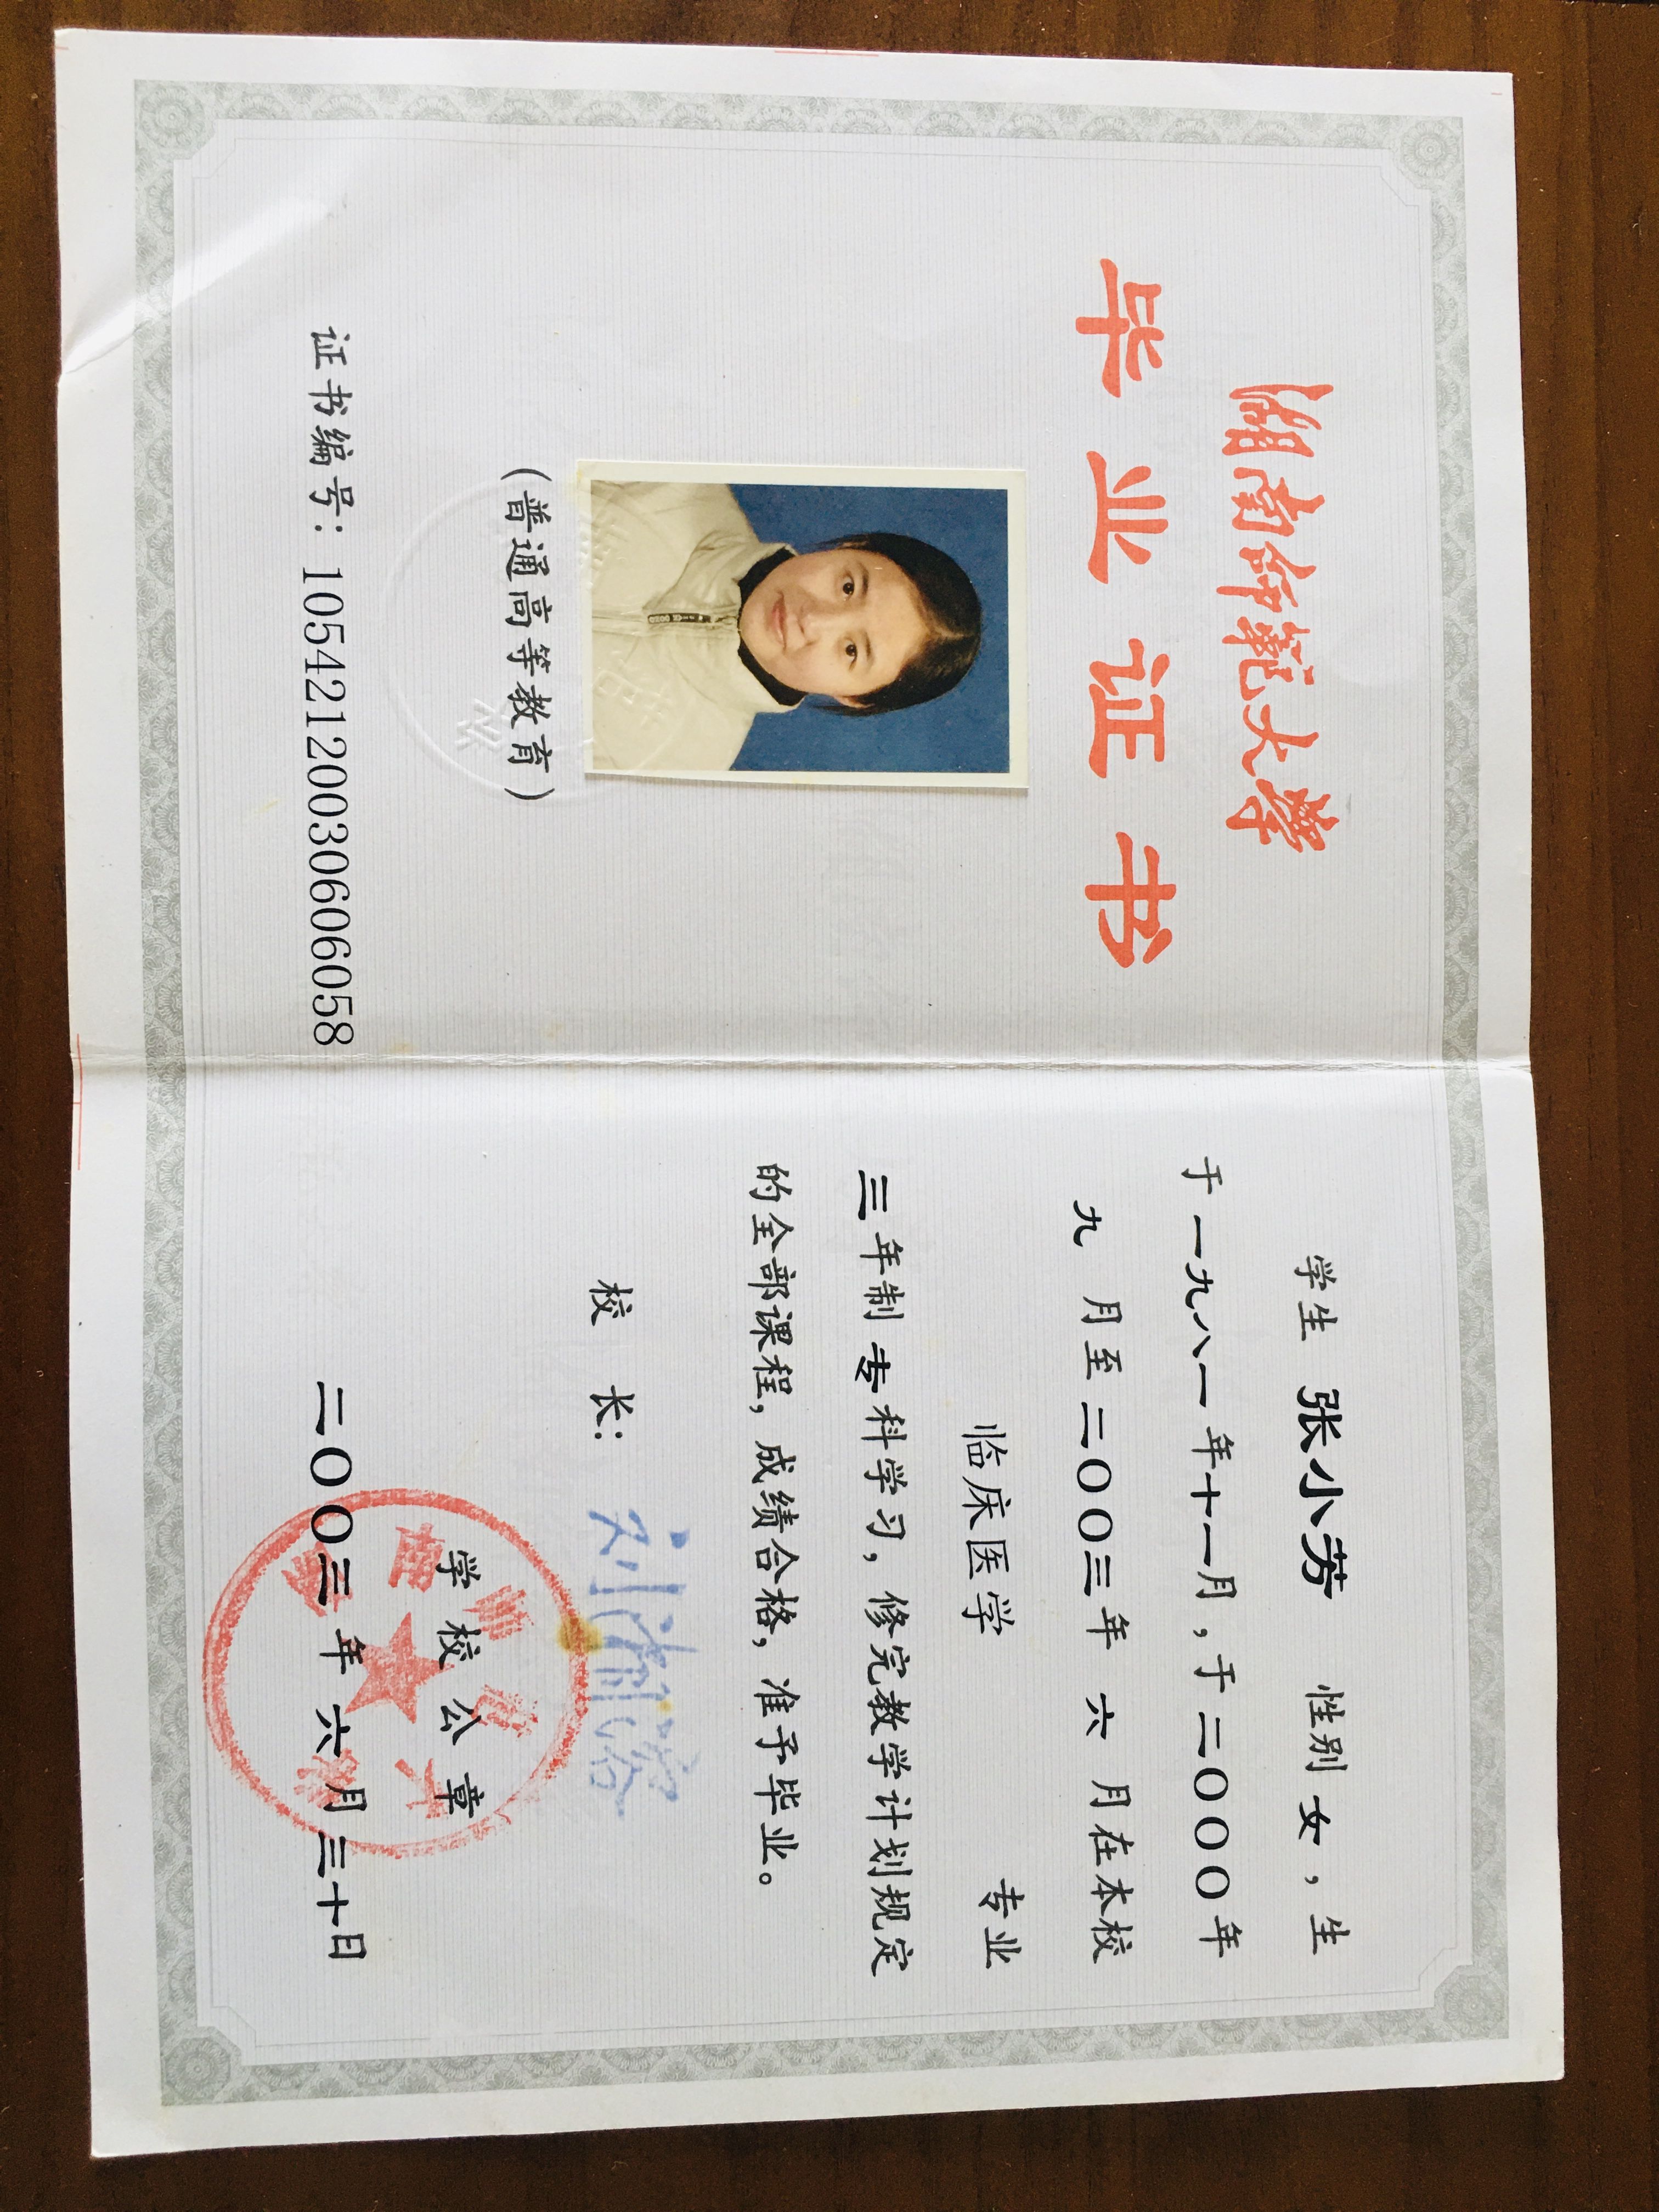 湖南师范大学
毕业证书
(普通高等教育)
证书编号：105421200306060058
学生 张小芳 性别 女，生
于一九八一年十一月，于二〇〇〇年
九 月至二〇〇三年 六 月在本校
临床医学 专业
三年制专科学习，修完教学计划规定
的全部课程，成绩合格，准予毕业。
校 长：刘湘溶
学校公章
二〇〇三年六月三十日